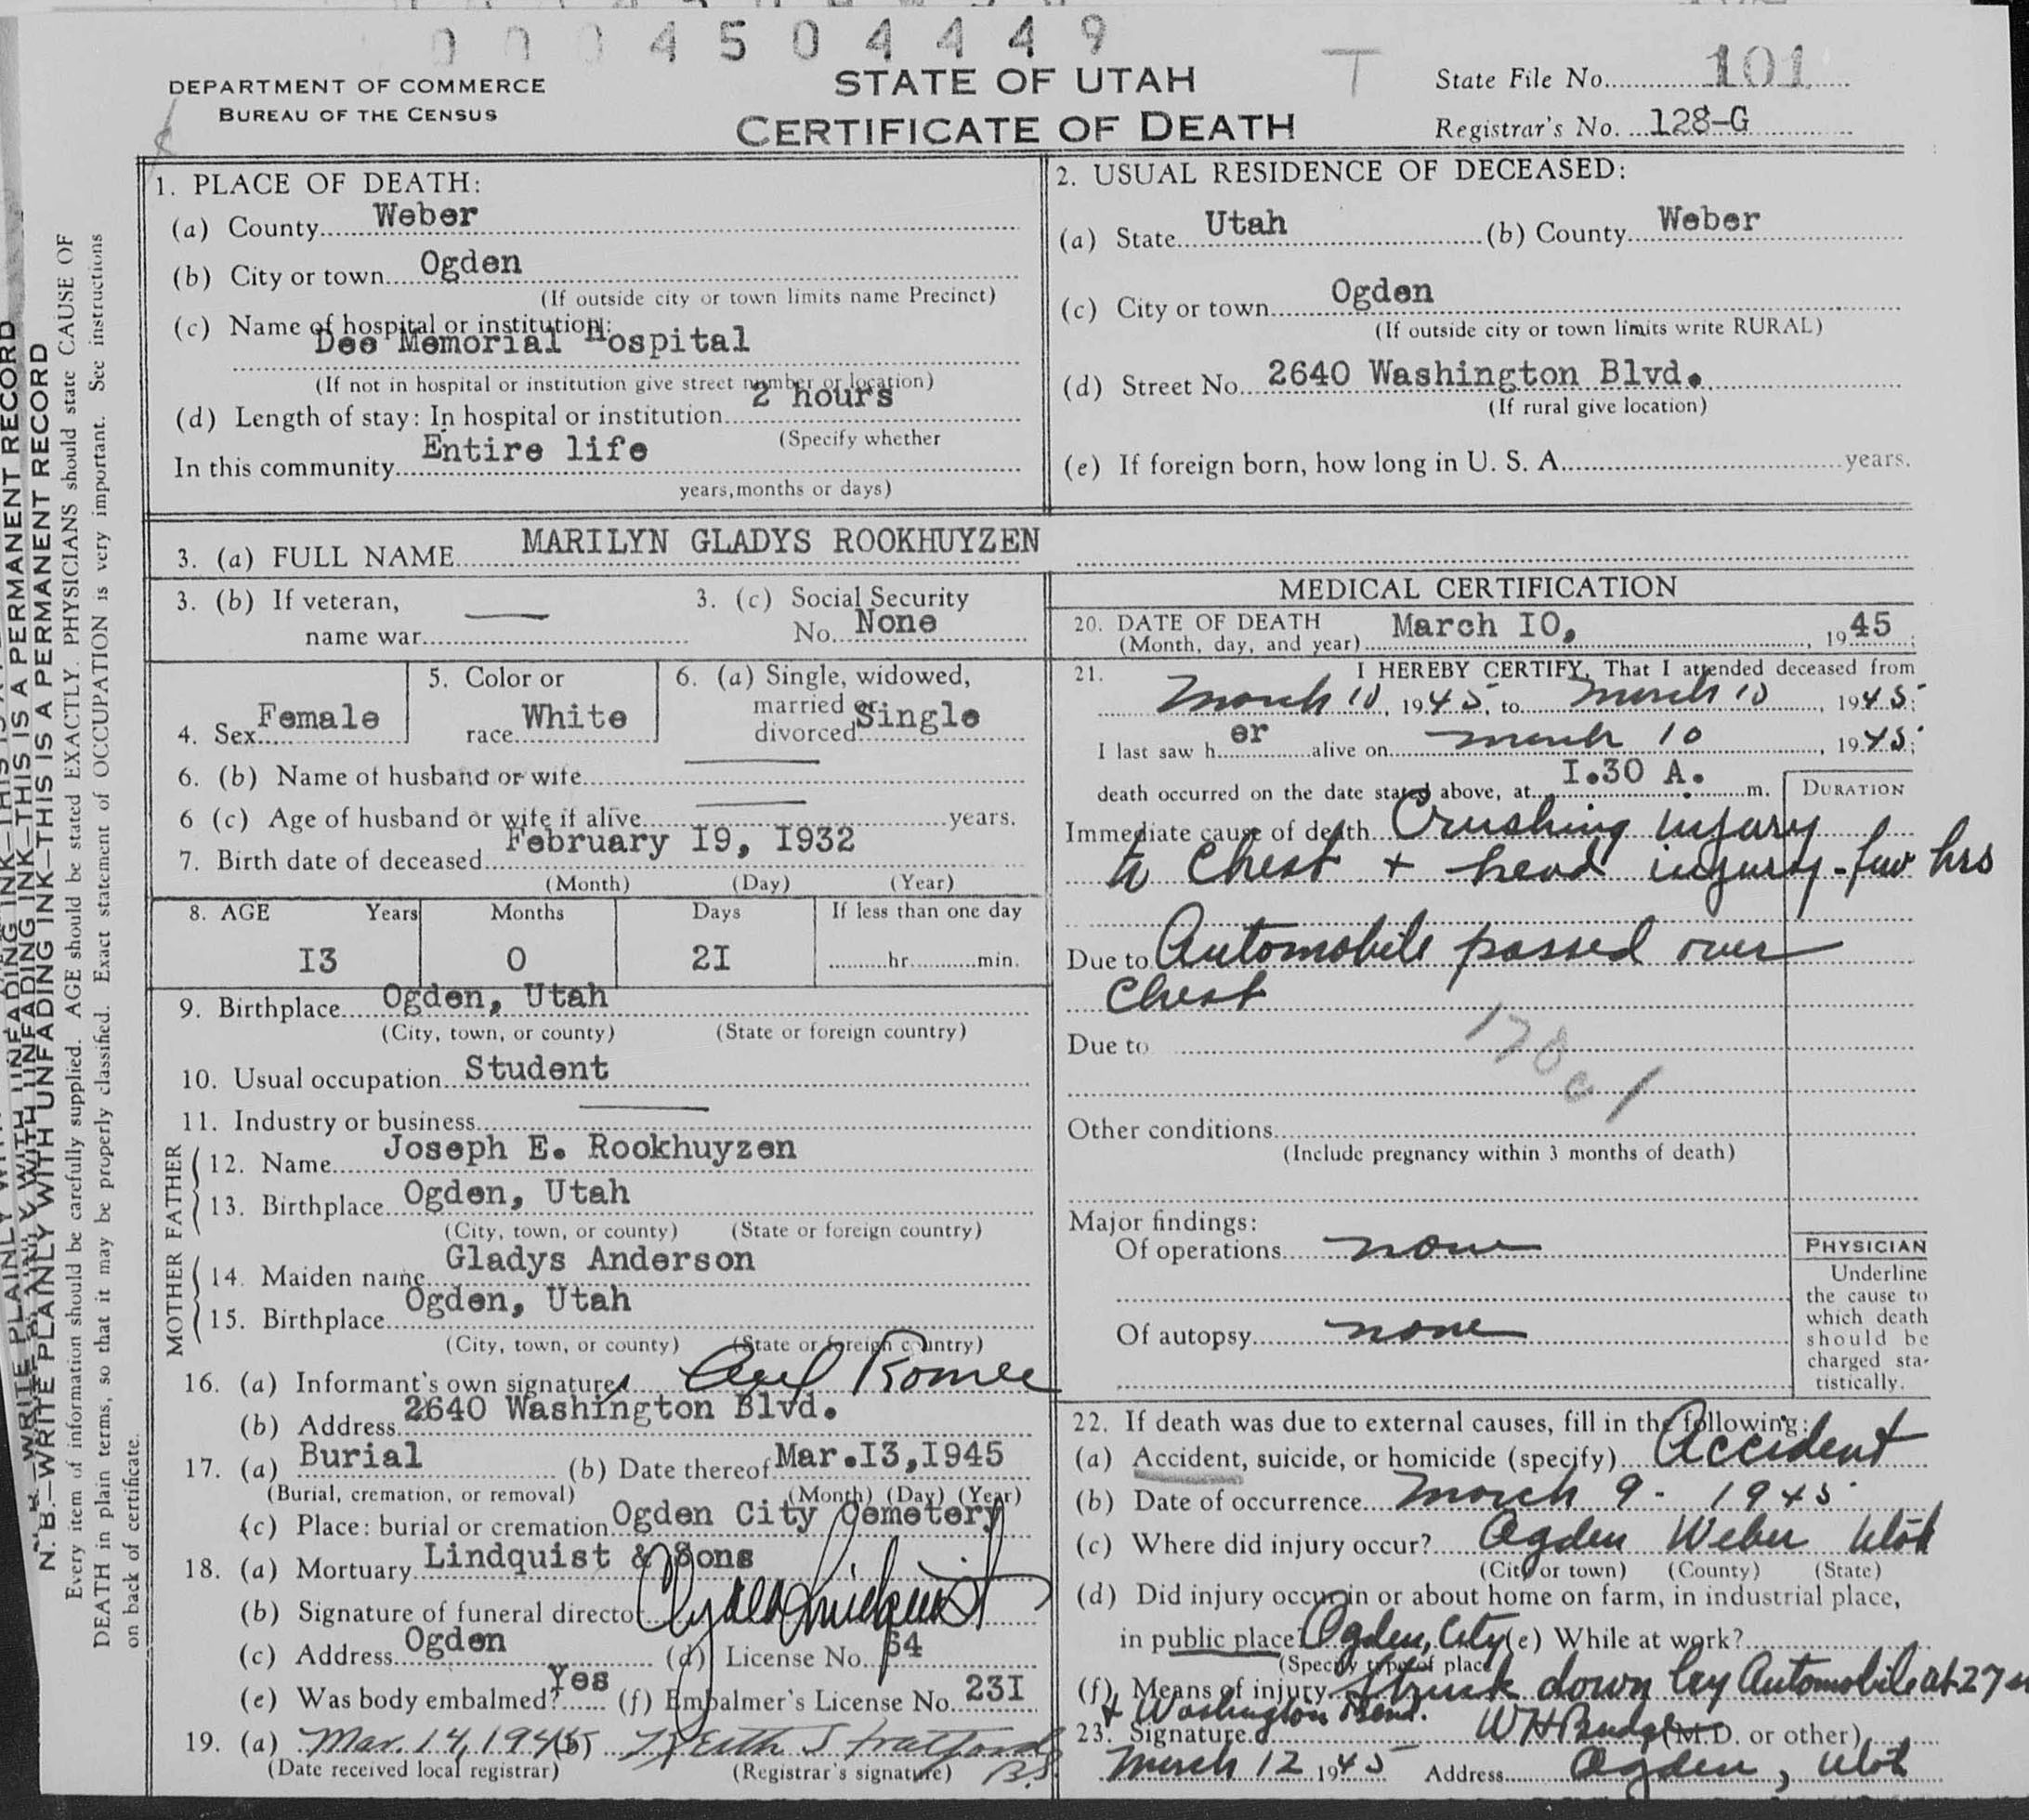 0004504449
DEPARTMENT OF COMMERCE
BUREAU OF THE CENSUS
STATE OF UTAH
CERTIFICATE OF DEATH
T
State File No. 101
Registrar's No. 128-G
1. PLACE OF DEATH:
(a) County Weber
(b) City or town Ogden
(If outside city or town limits name Precinct)
(c) Name of hospital or institution:
Dee Memorial Hospital
(If not in hospital or institution give street number or location)
(d) Length of stay: In hospital or institution 2 hours
(Specify whether
In this community Entire life
years, months or days)
2. USUAL RESIDENCE OF DECEASED:
(a) State Utah (b) County Weber
(c) City or town Ogden
(If outside city or town limits write RURAL)
(d) Street No. 2640 Washington Blvd.
(If rural give location)
(e) If foreign born, how long in U. S. A. years.
3. (a) FULL NAME MARILYN GLADYS ROOKHUYZEN
3. (b) If veteran,
name war
3. (c) Social Security
No. None
4. Sex Female
5. Color or
race White
6. (a) Single, widowed,
married or
divorced Single
6. (b) Name of husband or wife
6 (c) Age of husband or wife if alive years.
7. Birth date of deceased February I9, I932
(Month) (Day) (Year)
8. AGE Years Months Days If less than one day
I3 0 2I hr. min.
9. Birthplace Ogden, Utah
(City, town, or county) (State or foreign country)
10. Usual occupation Student
11. Industry or business
FATHER
12. Name Joseph E. Rookhuyzen
13. Birthplace Ogden, Utah
(City, town, or county) (State or foreign country)
MOTHER
14. Maiden name Gladys Anderson
15. Birthplace Ogden, Utah
(City, town, or county) (State or foreign country)
16. (a) Informant's own signature
(b) Address 2640 Washington Blvd.
17. (a) Burial (b) Date thereof Mar.I3,I945
(Burial, cremation, or removal) (Month) (Day) (Year)
(c) Place: burial or cremation Ogden City Cemetery
18. (a) Mortuary Lindquist & Sons
(b) Signature of funeral director Lindquist
(c) Address Ogden (d) License No. 64
(e) Was body embalmed? Yes (f) Embalmer's License No. 23I
19. (a) Mar. 14, 1945 (b) Stratford
(Date received local registrar) (Registrar's signature)
MEDICAL CERTIFICATION
20. DATE OF DEATH
(Month, day, and year) March I0, 1945;
21. I HEREBY CERTIFY, That I attended deceased from
March 10, 1945, to March 10, 1945;
I last saw her alive on March 10, 1945;
death occurred on the date stated above, at I.30 A. m.
DURATION
Immediate cause of death Crushing injury
to Chest + head injury - few hrs
Due to Automobile passed over
Chest
Due to
Other conditions
(Include pregnancy within 3 months of death)
Major findings:
Of operations none
Of autopsy none
PHYSICIAN
Underline
the cause to
which death
should be
charged sta-
tistically.
22. If death was due to external causes, fill in the following:
(a) Accident, suicide, or homicide (specify) Accident
(b) Date of occurrence March 9 - 1945
(c) Where did injury occur? Ogden Weber Utah
(City or town) (County) (State)
(d) Did injury occur in or about home on farm, in industrial place,
in public place? Ogden, City (e) While at work?
(Specify type of place)
(f) Means of injury Struck down by Automobile at 27
+ Washington
23. Signature (M.D. or other)
March 12 1945 Address Ogden, Utah
N. B.—WRITE PLAINLY WITH UNFADING INK—THIS IS A PERMANENT RECORD
Every item of information should be carefully supplied. AGE should be stated EXACTLY. PHYSICIANS should state CAUSE OF
DEATH in plain terms, so that it may be properly classified. Exact statement of OCCUPATION is very important. See instructions
on back of certificate.